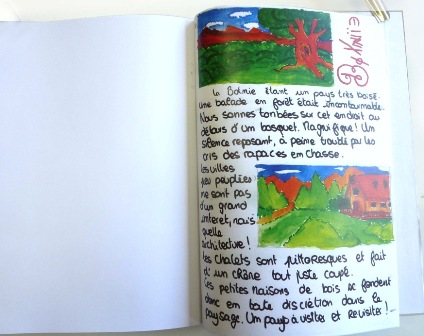 La Bolmie étant un pays très boisé.
Une balade en forêt était incontournable.
Nous sonnes tonbées sur cet endroit au
détours d'un bosquet. Magnifique ! Un
silence reposant, à peine troublé par les
cris des rapaces en chasse.
Les villes
peu peuplées
ne sont pas
d'un grand
intéret, mais
quelle
architecture !
Les chalets sont pittoresques et fait
d'un chêne tout juste coupé.
Les petites maisons de bois se fondent
donc en toute discrétion dans le
paysage. Un pays à visiter et revisiter !